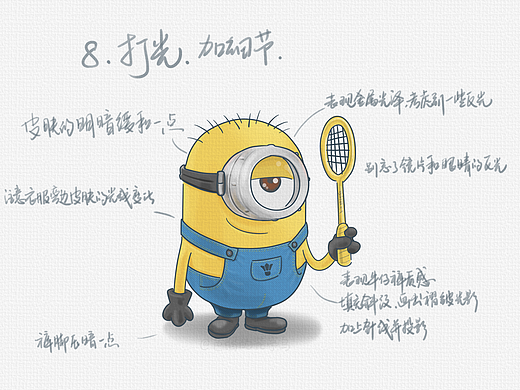 8.打光.加细节.
表现金属光泽.考虑到一些反光
皮肤的明暗缓和一点
别忘了镜片和眼睛的反光
注意衣服旁边皮肤的光线变化
表现牛仔裤质感
填充斜纹、画出褶皱光影
加上针线并投影
裤脚后暗一点